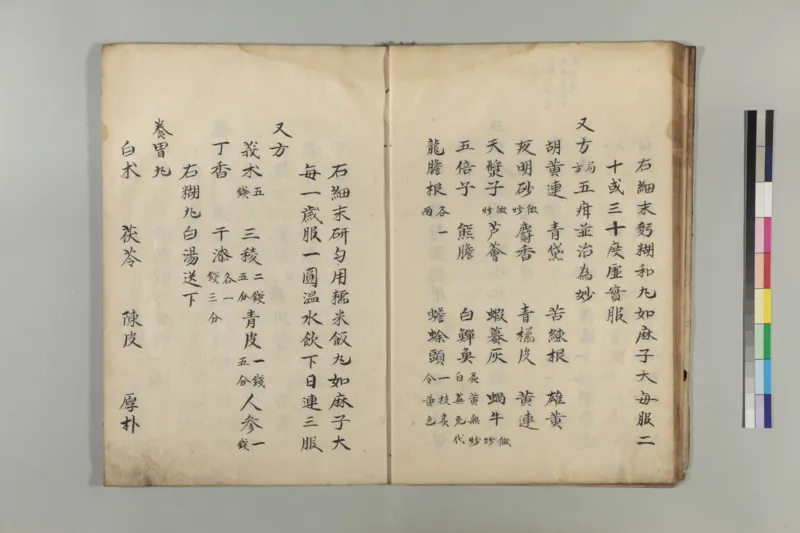 右細末麪糊和丸如麻子大每服二
十或三十度虛實服
又方局方五疳並治為妙
胡黃連 青黛 苦練根 雄黃
夜明砂微炒 麝香 青橘皮 黃連
天漿子微炒 芦薈 蝦蟇灰 蝸牛微炒
五倍子 熊膽 白鱓魚炙黃無白蕪免代炒
龍膽根各一兩 蟾蜍頭一枝炙令黃色
右細末研勻用糯米飯丸如麻子大
每一歲服一圓温水飲下日連三服
又方
莪朮五錢 三稜二錢五分 青皮一錢五分 人參一錢
丁香 干漆各一錢三分
右糊丸白湯送下
養胃丸
白朮 茯苓 陳皮 厚朴